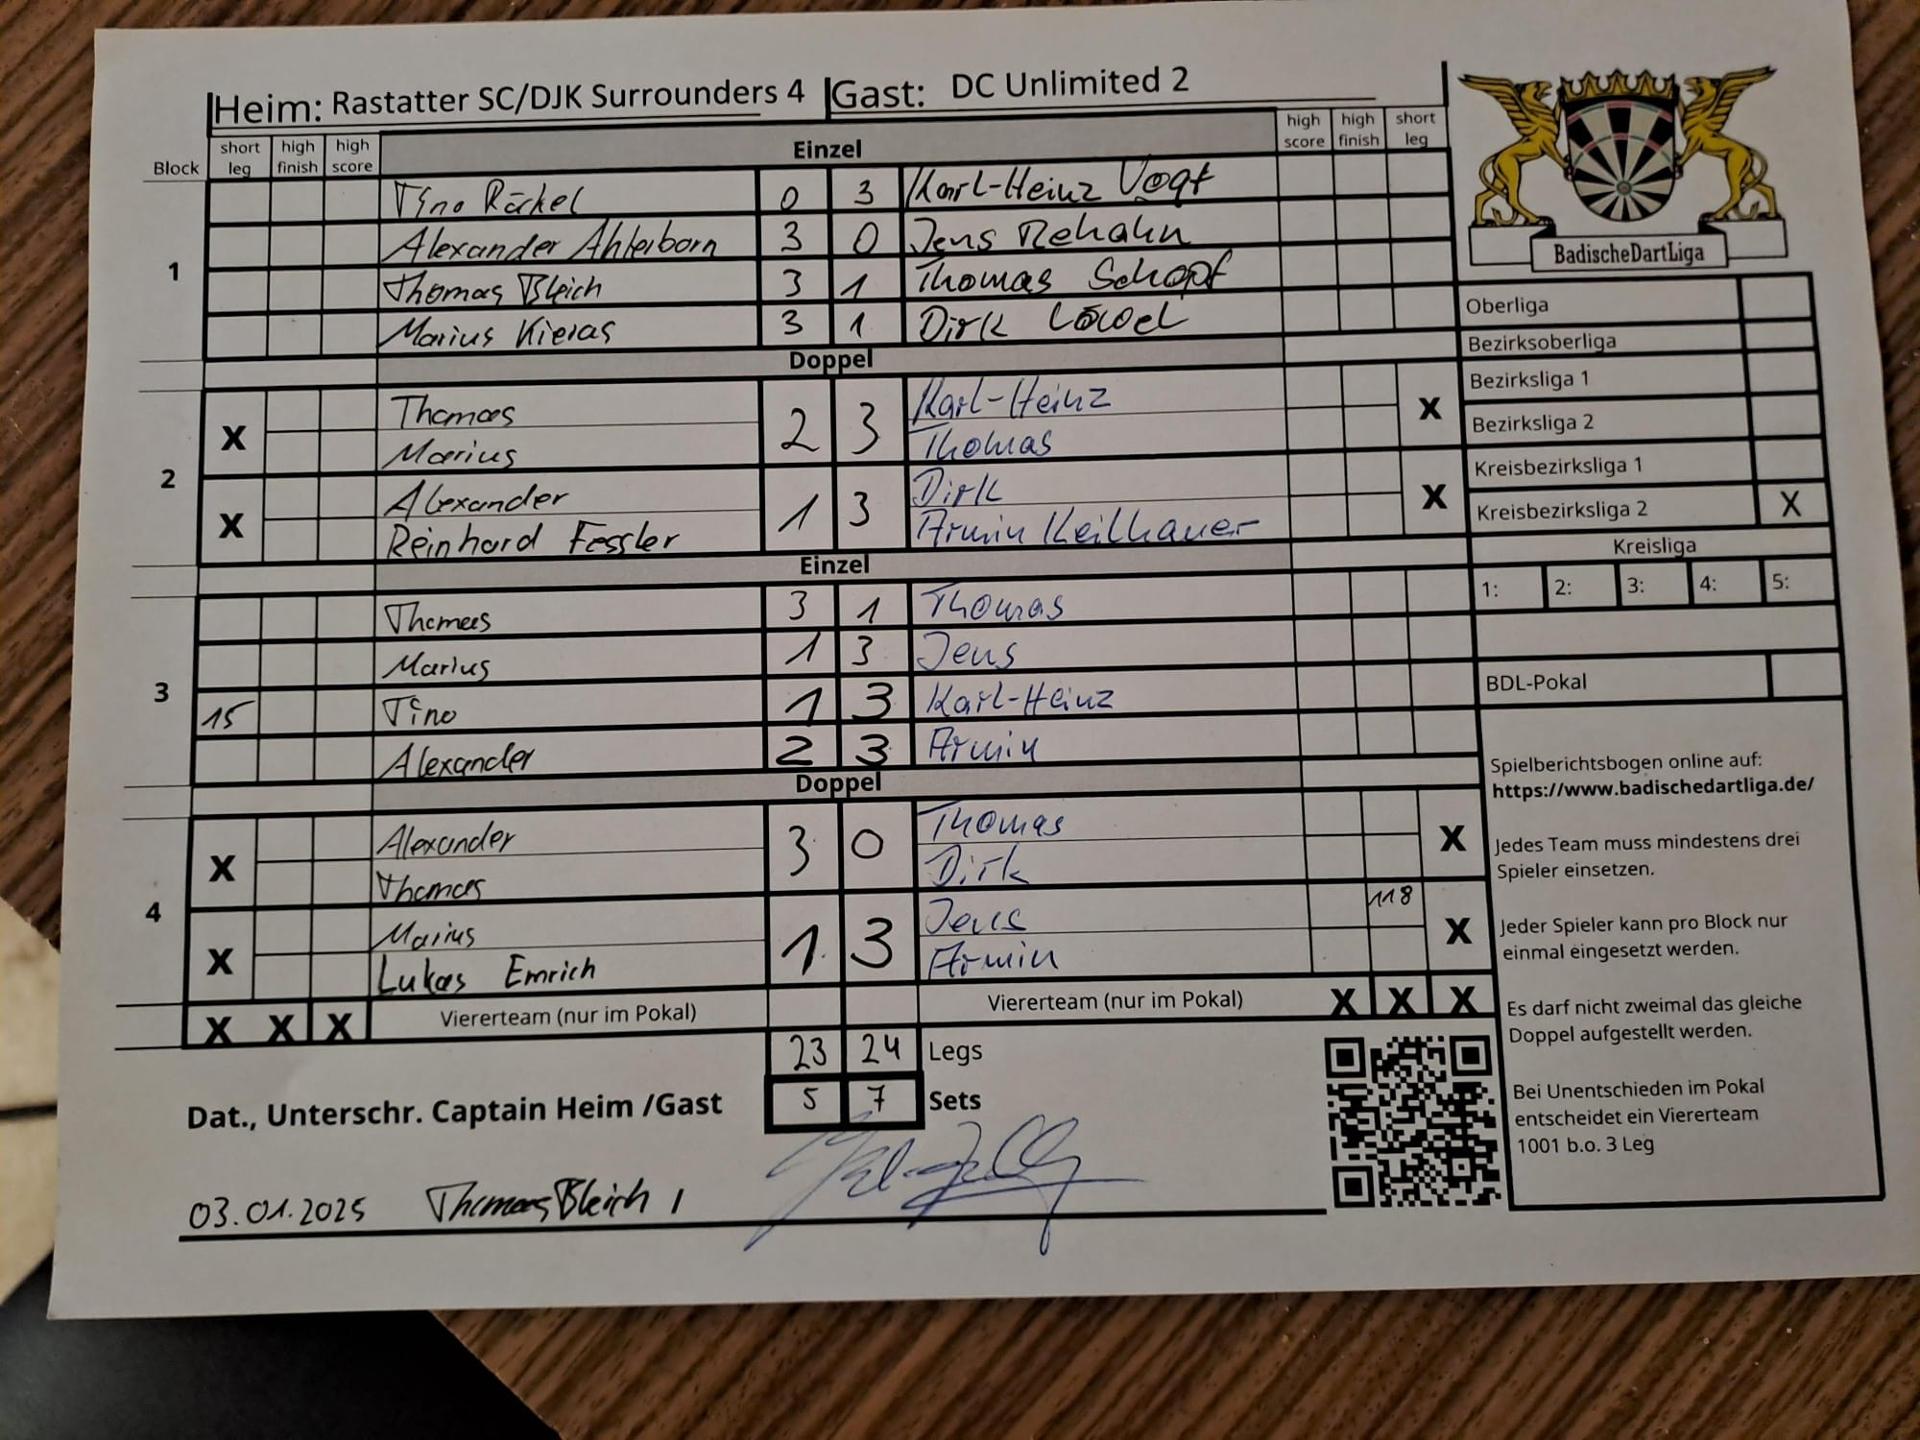 Heim: Rastatter SC/DJK Surrounders 4 Gast: DC Unlimited 2
Block short leg high finish high score Einzel high score high finish short leg
1
Tino Räkel 0 3 Karl-Heinz Vogt
Alexander Ahlerborn 3 0 Jens Rehahn
Thomas Bleich 3 1 Thomas Schopf
Marius Kieras 3 1 Dirk Löwel
Doppel
2
X Thomas 2 3 Karl-Heinz X
Marius Thomas
X Alexander 1 3 Dirk X
Reinhard Fessler Armin Keilhauer
Einzel
3
Thomas 3 1 Thomas
Marius 1 3 Jens
15 Tino 1 3 Karl-Heinz
Alexander 2 3 Armin
Doppel
4
X Alexander 3 0 Thomas X
Thomas Dirk
X Marius 1 3 Jens 118 X
Lukas Emrich Armin
X X X Viererteam (nur im Pokal) Viererteam (nur im Pokal) X X X
23 24 Legs
Dat., Unterschr. Captain Heim /Gast 5 7 Sets
03.01.2025 Thomas Bleich /
BadischeDartLiga
Oberliga
Bezirksoberliga
Bezirksliga 1
Bezirksliga 2
Kreisbezirksliga 1
Kreisbezirksliga 2 X
Kreisliga
1: 2: 3: 4: 5:
BDL-Pokal
Spielberichtsbogen online auf:
https://www.badischedartliga.de/
Jedes Team muss mindestens drei
Spieler einsetzen.
Jeder Spieler kann pro Block nur
einmal eingesetzt werden.
Es darf nicht zweimal das gleiche
Doppel aufgestellt werden.
Bei Unentschieden im Pokal
entscheidet ein Viererteam
1001 b.o. 3 Leg